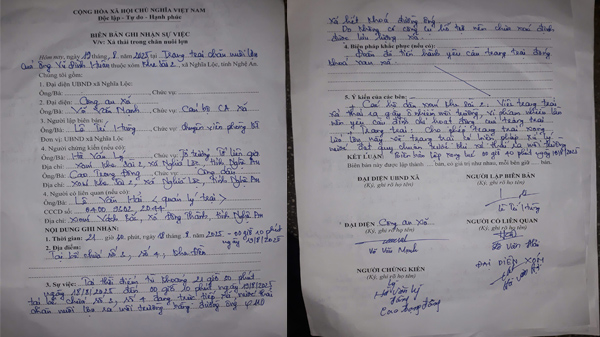 CỘNG HÒA XÃ HỘI CHỦ NGHĨA VIỆT NAM
Độc lập - Tự do - Hạnh phúc
BIÊN BẢN GHI NHẬN SỰ VIỆC
V/v: Xả thải trong chăn nuôi lợn
Hôm nay, ngày 19 8 2025 Tại Trang trại chăn nuôi lợn
của ông Vũ Đình thuộc xóm Khe Sài 2, xã Nghĩa Lộc, tỉnh Nghệ An
Chúng tôi gồm:
1. Đại diện UBND xã Nghĩa Lộc:
Ông/Bà: Chức vụ:
2. Đại diện: Công an xã
Ông/Bà: Võ Văn Mạnh Chức vụ: Cán bộ CA xã
3. Người lập biên bản:
Ông/Bà: Lê Tài Chức vụ: Chuyên viên phòng KT
Đơn vị UBND xã Nghĩa Lộc
4. Người chứng kiến (nếu có):
Ông/Bà: Hồ Văn Lý Chức vụ: Tổ trưởng Tổ liên gia
Địa chỉ: xóm Khe Sài 2, xã Nghĩa Lộc, tỉnh Nghệ An
Ông/Bà: Cao Trọng Đồng Chức vụ: Công dân
Địa chỉ: xóm Khe Sài 2, xã Nghĩa Lộc, tỉnh Nghệ An
4. Người có liên quan (nếu có):
Ông/Bà: Lê Văn (quản lý trại)
CCCD số:
Địa chỉ: xóm xã Đông Thành, tỉnh Nghệ An
NỘI DUNG GHI NHẬN:
1. Thời gian: 21 giờ 00 phút, ngày 18/8/2025 - 00 giờ 10 phút
ngày 19/8/2025
2. Địa điểm:
Tại bể chứa số 3, số 4, khe
3. Sự việc: Tại thời điểm từ khoảng 21 giờ 00 phút
ngày 18/8/2025 đến 00 giờ 10 phút ngày 19/8/2025
tại bể chứa số 3, số 4 đang trực tiếp xả nước thải
chăn nuôi lợn ra môi trường bằng đường ống
xả hết khoá đường ống
Do không có công cụ hỗ trợ nên chưa xác định
được lưu lượng xả.
4. Biện pháp khắc phục (nếu có):
Đoàn đã tiến hành yêu cầu trang trại đóng
khoá van xả.
5. Ý kiến của các bên:
xóm khe Sài 2. Việc trang trại
xả thải ra gây ô nhiễm môi trường, vi phạm nhiều lần
nên yêu cầu đình chỉ hoạt động của trang trại
trang trại: Cho phép trang trại xong
lứa lợn này và trang trại có biện pháp xử lý
nước đạt quy chuẩn trước khi xả thải ra môi trường
KẾT LUẬN: Biên bản lập xong lúc 00 giờ 40 phút ngày 19/8/2025
Biên bản này được lập thành bản, có giá trị như nhau, mỗi bên giữ bản.
ĐẠI DIỆN UBND XÃ
(Ký, ghi rõ họ tên)
NGƯỜI LẬP BIÊN BẢN
(Ký, ghi rõ họ tên)
Lê Tài
ĐẠI DIỆN Công an xã
(Ký, ghi rõ họ tên)
Võ Văn Mạnh
NGƯỜI CÓ LIÊN QUAN
(Ký, ghi rõ họ tên)
Lê Văn
NGƯỜI CHỨNG KIẾN
(Ký, ghi rõ họ tên)
Hồ Văn Lý
Đồng
Cao Trọng Đồng
ĐẠI DIỆN XÓM